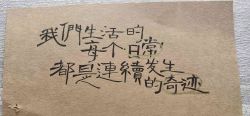 我們生活的
每个日常
都是連續发生
的奇迹